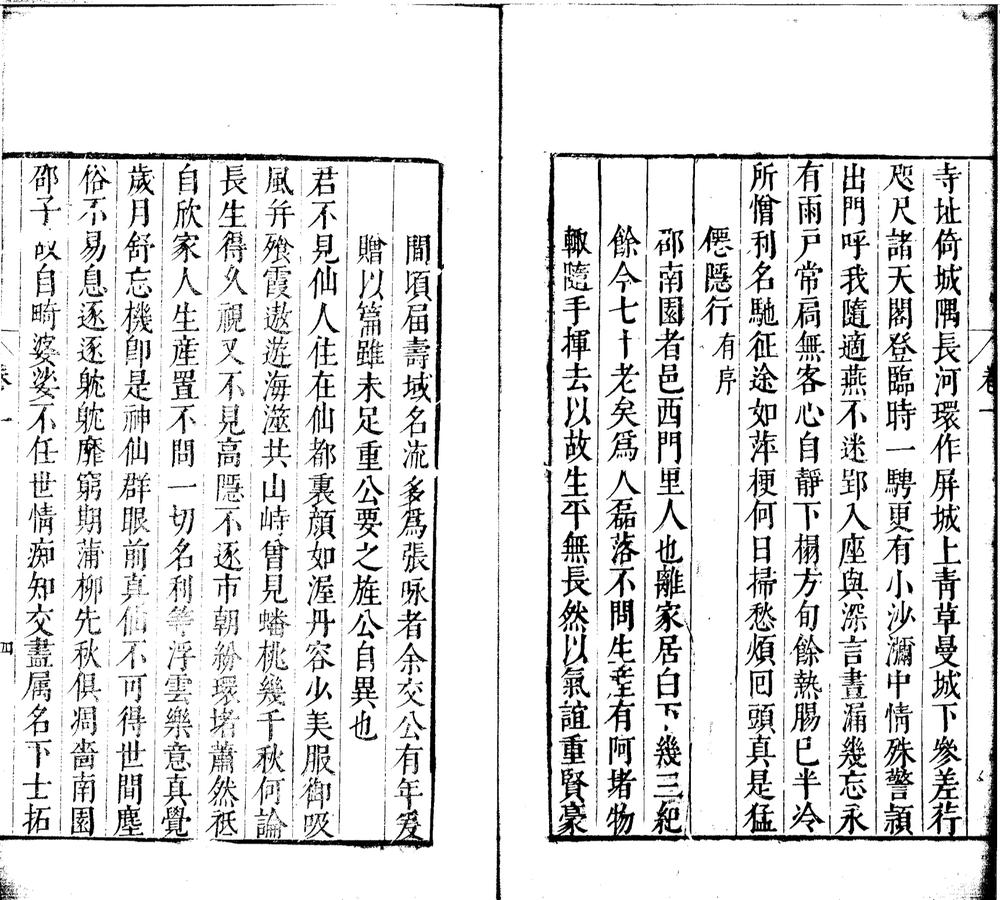 寺址倚城隅長河環作屏城上青草曼城下參差荇
咫尺諸天閣登臨時一騁更有小沙瀰中情殊警頴
出門呼我隨適燕不迷郢入座與深言晝漏幾忘永
有雨戸常扃無客心自靜下榻方旬餘熱腸已半冷
所憎利名馳征途如萍梗何日掃愁煩回頭真是猛
僊隱行有序
邵南園者邑西門里人也離家居白下幾三紀
餘今七十老矣爲人磊落不問生產有阿堵物
輙隨手揮去以故生平無長然以氣誼重賢豪
卷一
間頃届壽域名流多爲張咏者余交公有年爰
贈以篇雖未足重公要之旌公自異也
君不見仙人住在仙都裏顔如渥丹容少美服御吸
風并飱霞遨遊海澨共山峙曾見蟠桃幾千秋何論
長生得久視又不見高隱不逐市朝紛環堵蕭然祗
自欣家人生産置不問一切名利等浮雲樂意真覺
歲月舒忘機卽是神仙群眼前真仙不可得世間塵
俗不易息逐逐躭躭靡窮期蒲柳先秋俱凋嗇南園
邵子 自畸婆娑不任世情痴知交盡属名下士拓
卷一
四